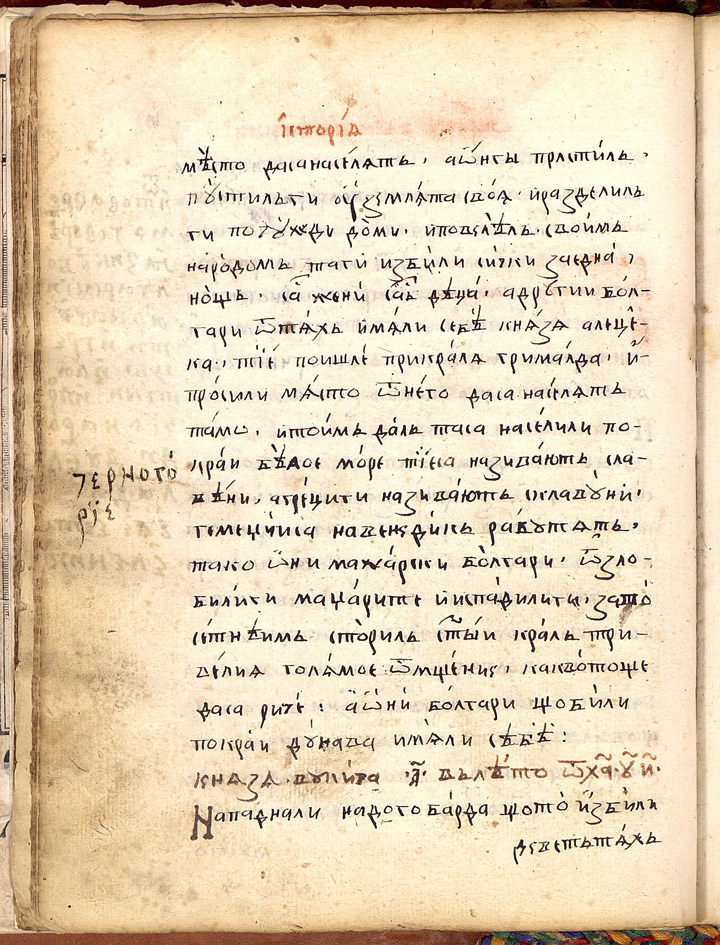 їсторїѧ
мѣсто дасанаселѧтъ. аѡ҆нъ гы прѧстилъ.
пꙋстилъги ѹ҆земльтасвоѧ. и҆разделилъ
ги потꙋждї до́ми. и҆повелѣлъ. свои́мъ
наро́домъ таги и҆зби́ли си́чки заедна́,
но́щь. са жени́ са деца́. адрꙋгїи бо́л-
гари ѿтѧ́хъ и҆мѧ́ли себѣ кнѧ́зѧ алеце́-
ка. тїе поишле́ прикра́лѧ грима́лда. и҆-
про́сили мѧ́сто ѿне́го даса населѧ́тъ
та́мѡ. и҆тои́мъ да́лъ таса населили по-
кра́и бѣ́лое мо́ре тїеса назива́ютъ сла-
вѣ́ни. агре́цити назива́ютъ склавꙋ́ни.
гемецчиса навенедикъ рабꙋтатъ.
тако ѡ҆ни мажа́рски бо́лгари. ѿзло-
били́ги маџа́рите и҆испа́дилиги. зато́
сетнѣимъ сто́рилъ ст҃ы́й кра́ль три-
велиѧ голѧ́мое ѿмще́ние. каквотоще
даса рите́: аѡ҆ни́ бо́лгари щоби́ли
покра́и дꙋ́нава имѧ́ли себѣ:
кнѧзѧ вꙋкича .а҃. вълѣто ѿха҃.ꙋ҃.и҃.
Нападна́ли надогоба́рда щото́ и҆зби́ли
деветьтѧ́хъ
черного́
рїе